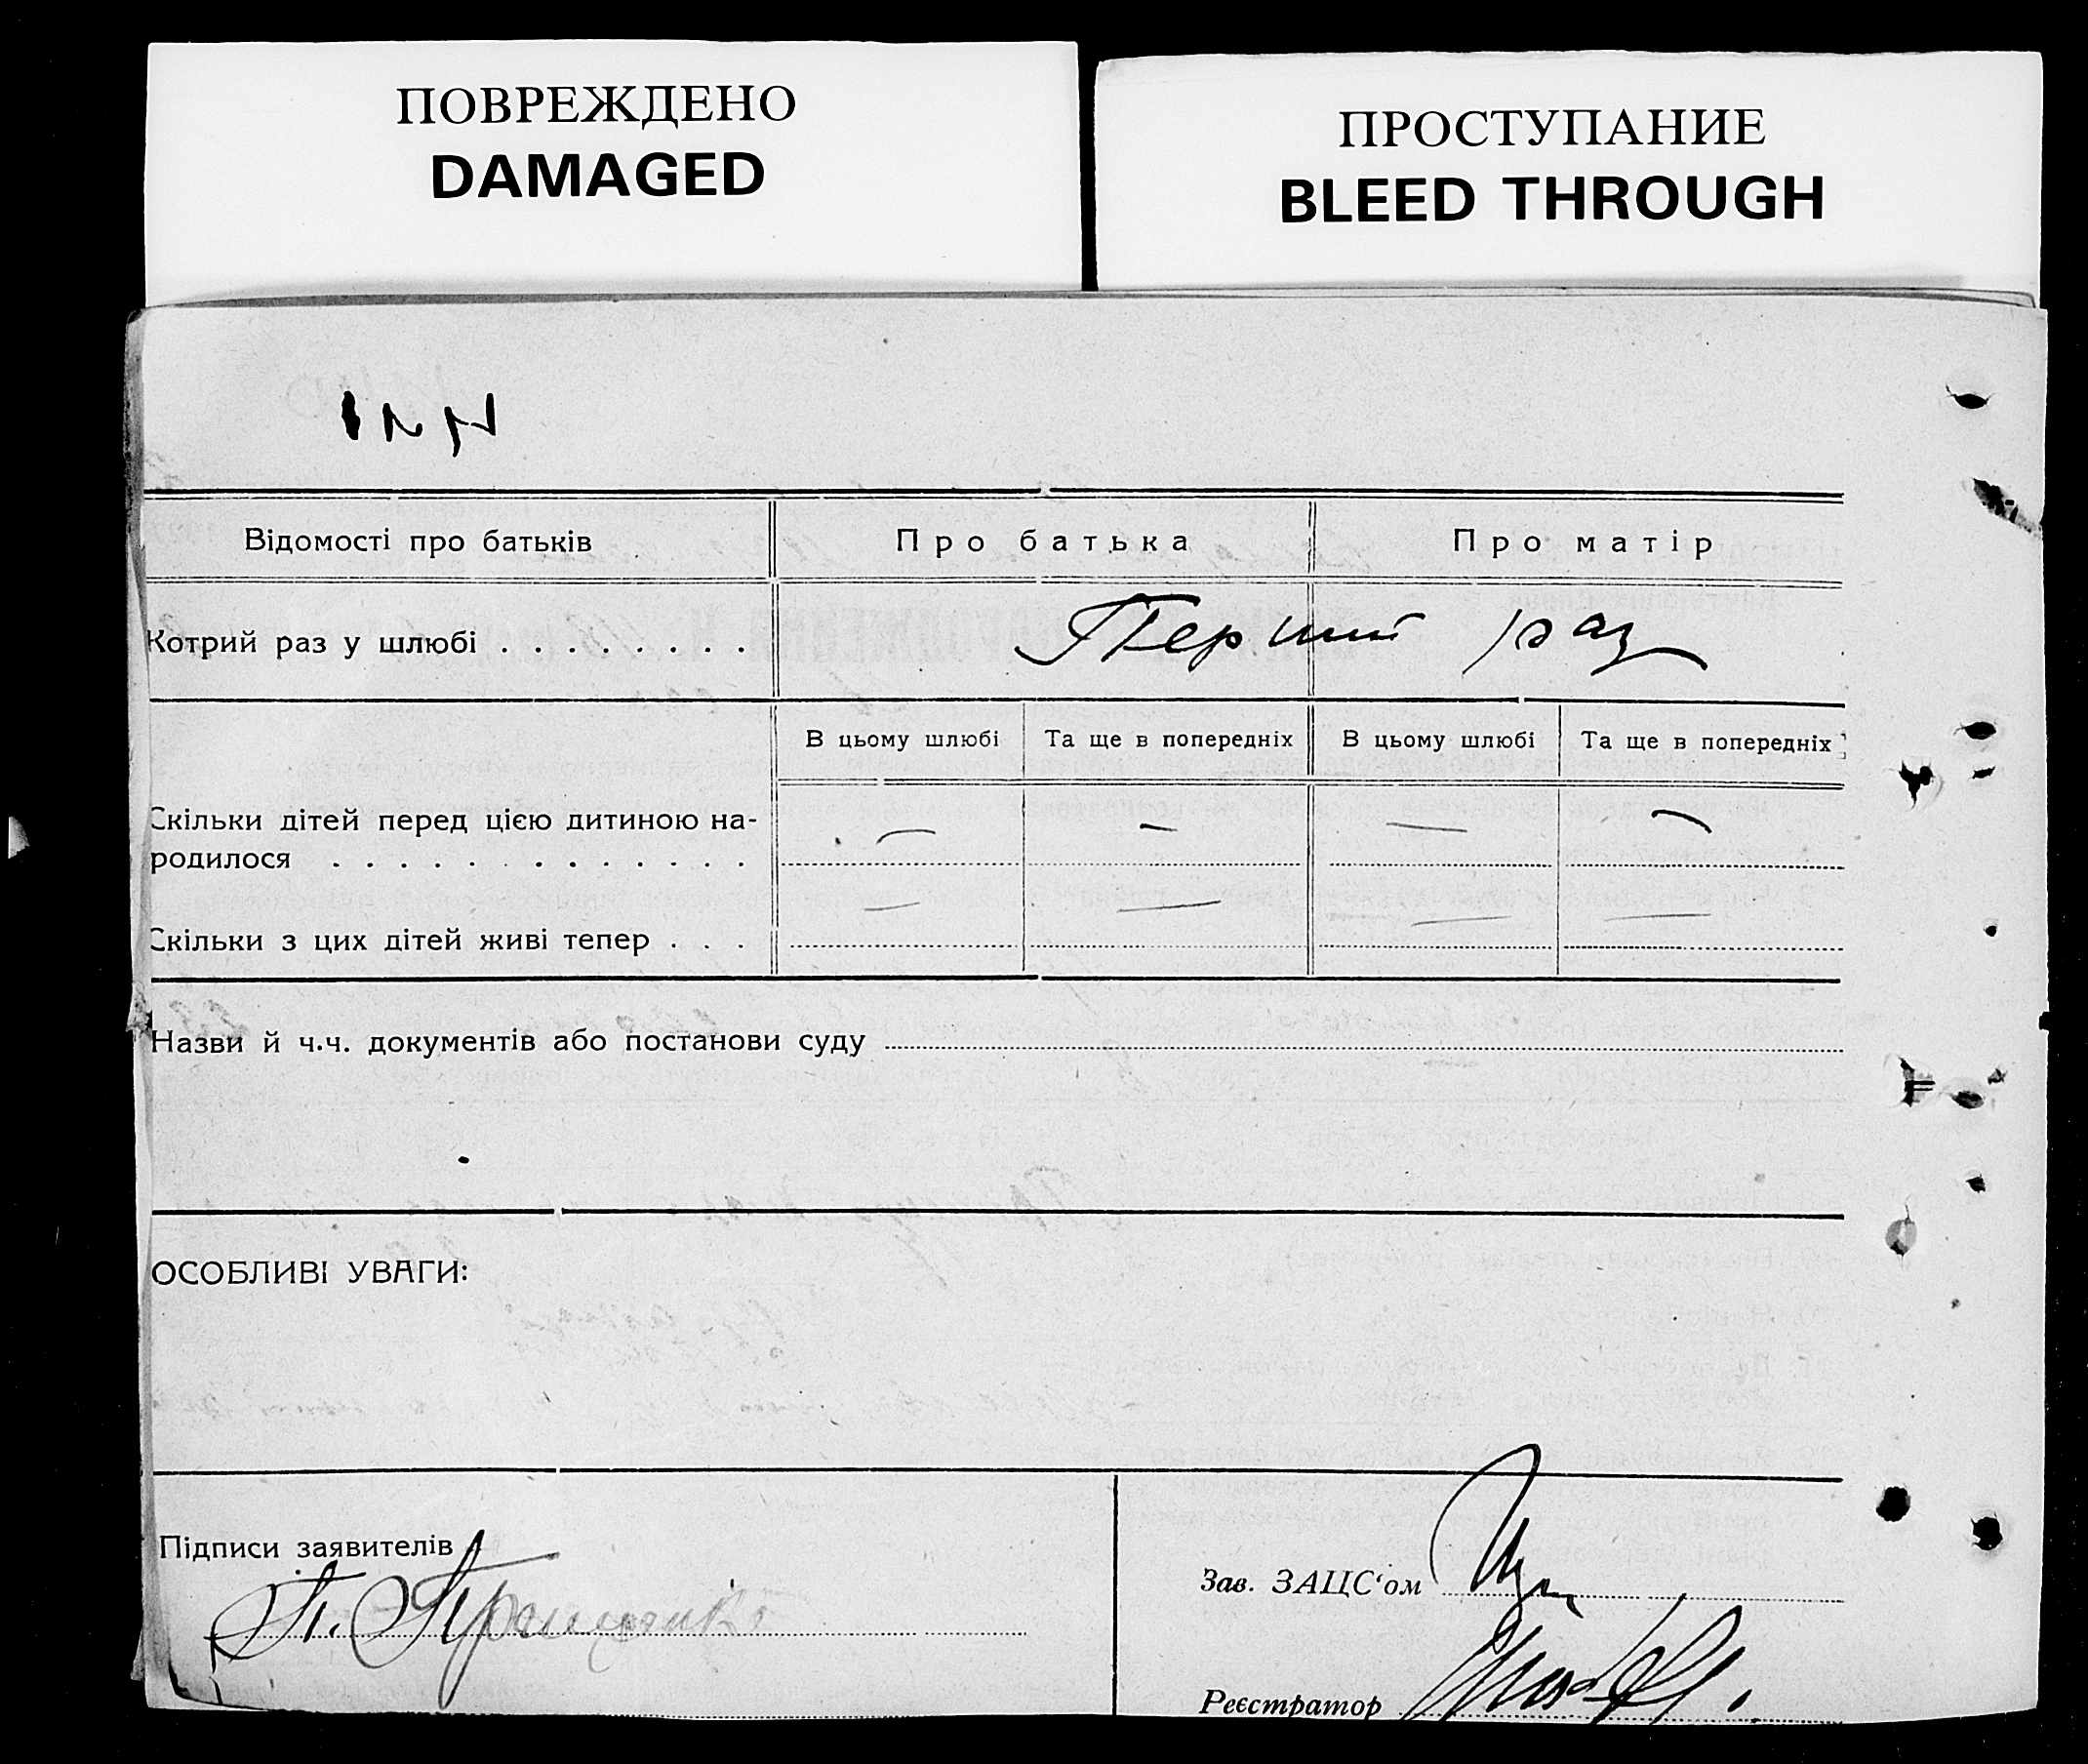 ПОВРЕЖДЕНО
DAMAGED
ПРОСТУПАНИЕ
BLEED THROUGH
Відомості про батьків
Про батька
Про матір
Котрий раз у шлюбі . . . . . . . .
Перший раз
В цьому шлюбі
Та ще в попередніх
В цьому шлюбі
Та ще в попередніх
Скільки дітей перед цією дитиною на-
родилося . . . . . . . . . . . . .
— — — —
Скільки з цих дітей живі тепер . . .
— — — —
Назви й ч.ч. документів або постанови суду
ОСОБЛИВІ УВАГИ:
Підписи заявителів
Зав. ЗАЦС‘ом
Реєстратор